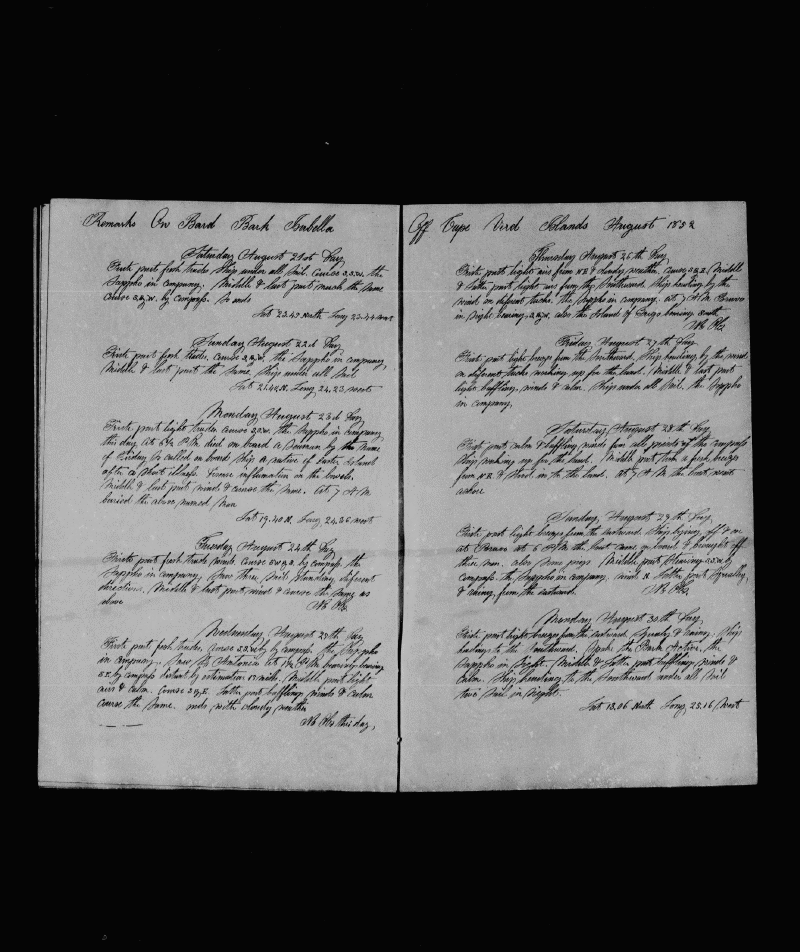 Remarks On Board Bark Isabella
Saturday August 21st Day
First part fresh trades Ship under all Sail Course S.S.W. the
Sappho in company. Middle & last part much the Same
Course by compass. So ends
Lat 23.43 North Long 23.44 West
Sunday August 22d Day
First part fresh trades, course the Sappho in company,
Middle & last part the Same, Ship under all Sail
Lat 21.42 N. Long 24.23 West
Monday August 23d Day
First part light trades course S.S.W. the Sappho in company
this day at P.M. died on board a Seaman by the Name
of Friday So called on board Ship a native of Easter Island
after a Short illness. Severe inflamation in the bowels.
Middle & last part wind & course the Same. At 7 A M
buried the above named Man
Lat 19.40 N. Long 24.36 West
Tuesday August 24th Day
First part fresh trade winds. course by compass the
Sappho in company, Saw three Sails Standing different
direction. Middle & last part wind & course the Same as
above No Obs
Wednesday August 25th Day
First part fresh trades, course by compass the Sappho
in company. Saw St Antonia at P.M. bearing
by compass distant by estimation miles. Middle part light
airs & calm. Course Latter part baffling winds & calm
course the Same. ends with cloudy weather
No Obs this day,
Off Cape Verd Islands August 1852
Thursday August 26th Day
First part light airs from N E & cloudy weather, course Middle
& Latter part light airs from the Southward. Ship heading by the
wind on different tacks. the Sappho in company. at 7 A M Bravo
in Sight bearing also the Island of Fogo bearing South
No Obs
Friday August 27th Day
First part light breeze from the Southward, Ship heading by the wind
on different tacks working up for the land. Middle & last part
light baffling winds & calm. Ship under all Sail. the Sappho
in company,
Saturday August 28th Day
First part calm & baffling winds from all points of the compass
Ship working up for the land. Middle part took a fresh breeze
from N E & Stood in to the land. at 7 A M the boat went
ashore
Sunday August 29th Day
First part light breeze from the eastward. Ship lying off & on
at Bravo at 6 P M the boat came on board & brought off
three men. also Some pigs Middle part Steering S.S.W. by
compass the Sappho in company. Latter part Squally
& rainy, from the eastward No Obs,
Monday August 30th Day
First part light breeze from the eastward. Squaly & rainy. Ship
heading to the Southward. Spoke the Bark Active, the
Sappho in Sight. Middle & Latter part baffling winds &
Calm. Ship heading to the Southward under all Sail
three Sail in Sight.
Lat 13.06 North Long 25.16 West